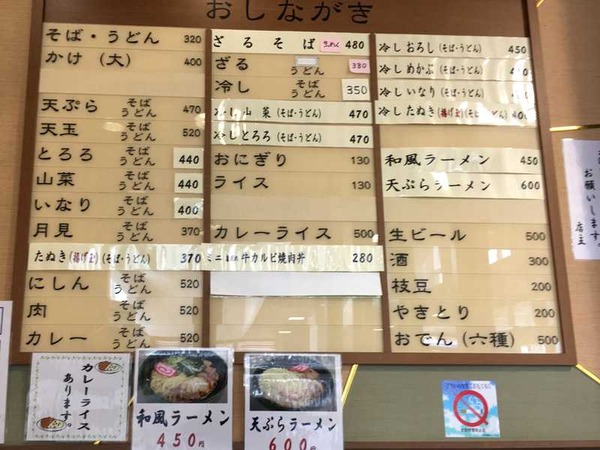 おしながき
そば・うどん 320
かけ (大) 400
天ぷら そば うどん 470
天玉 そば うどん 520
とろろ そば うどん 440
山菜 そば うどん 440
いなり そば うどん 400
月見 そば うどん 370
たぬき (揚げ玉) (そば・うどん) 370
にしん そば うどん 520
肉 そば うどん 520
カレー そば うどん 520
ざるそば 480
ざる うどん 380
冷し そば うどん 350
冷し山菜 (そば・うどん) 470
冷しとろろ (そば・うどん) 470
おにぎり 130
ライス 130
カレーライス 500
ミニ 牛カルビ焼肉丼 280
冷しおろし (そば・うどん) 450
冷しめかぶ (そば・うどん) 450
冷しいなり (そば・うどん) 400
冷したぬき (揚げ玉) (そば・うどん) 400
和風ラーメン 450
天ぷらラーメン 600
生ビール 500
酒 300
枝豆 200
やきとり 200
おでん (六種) 500
お願いします。
店主
カレーライス
あります。
和風ラーメン
450円
天ぷらラーメン
600円